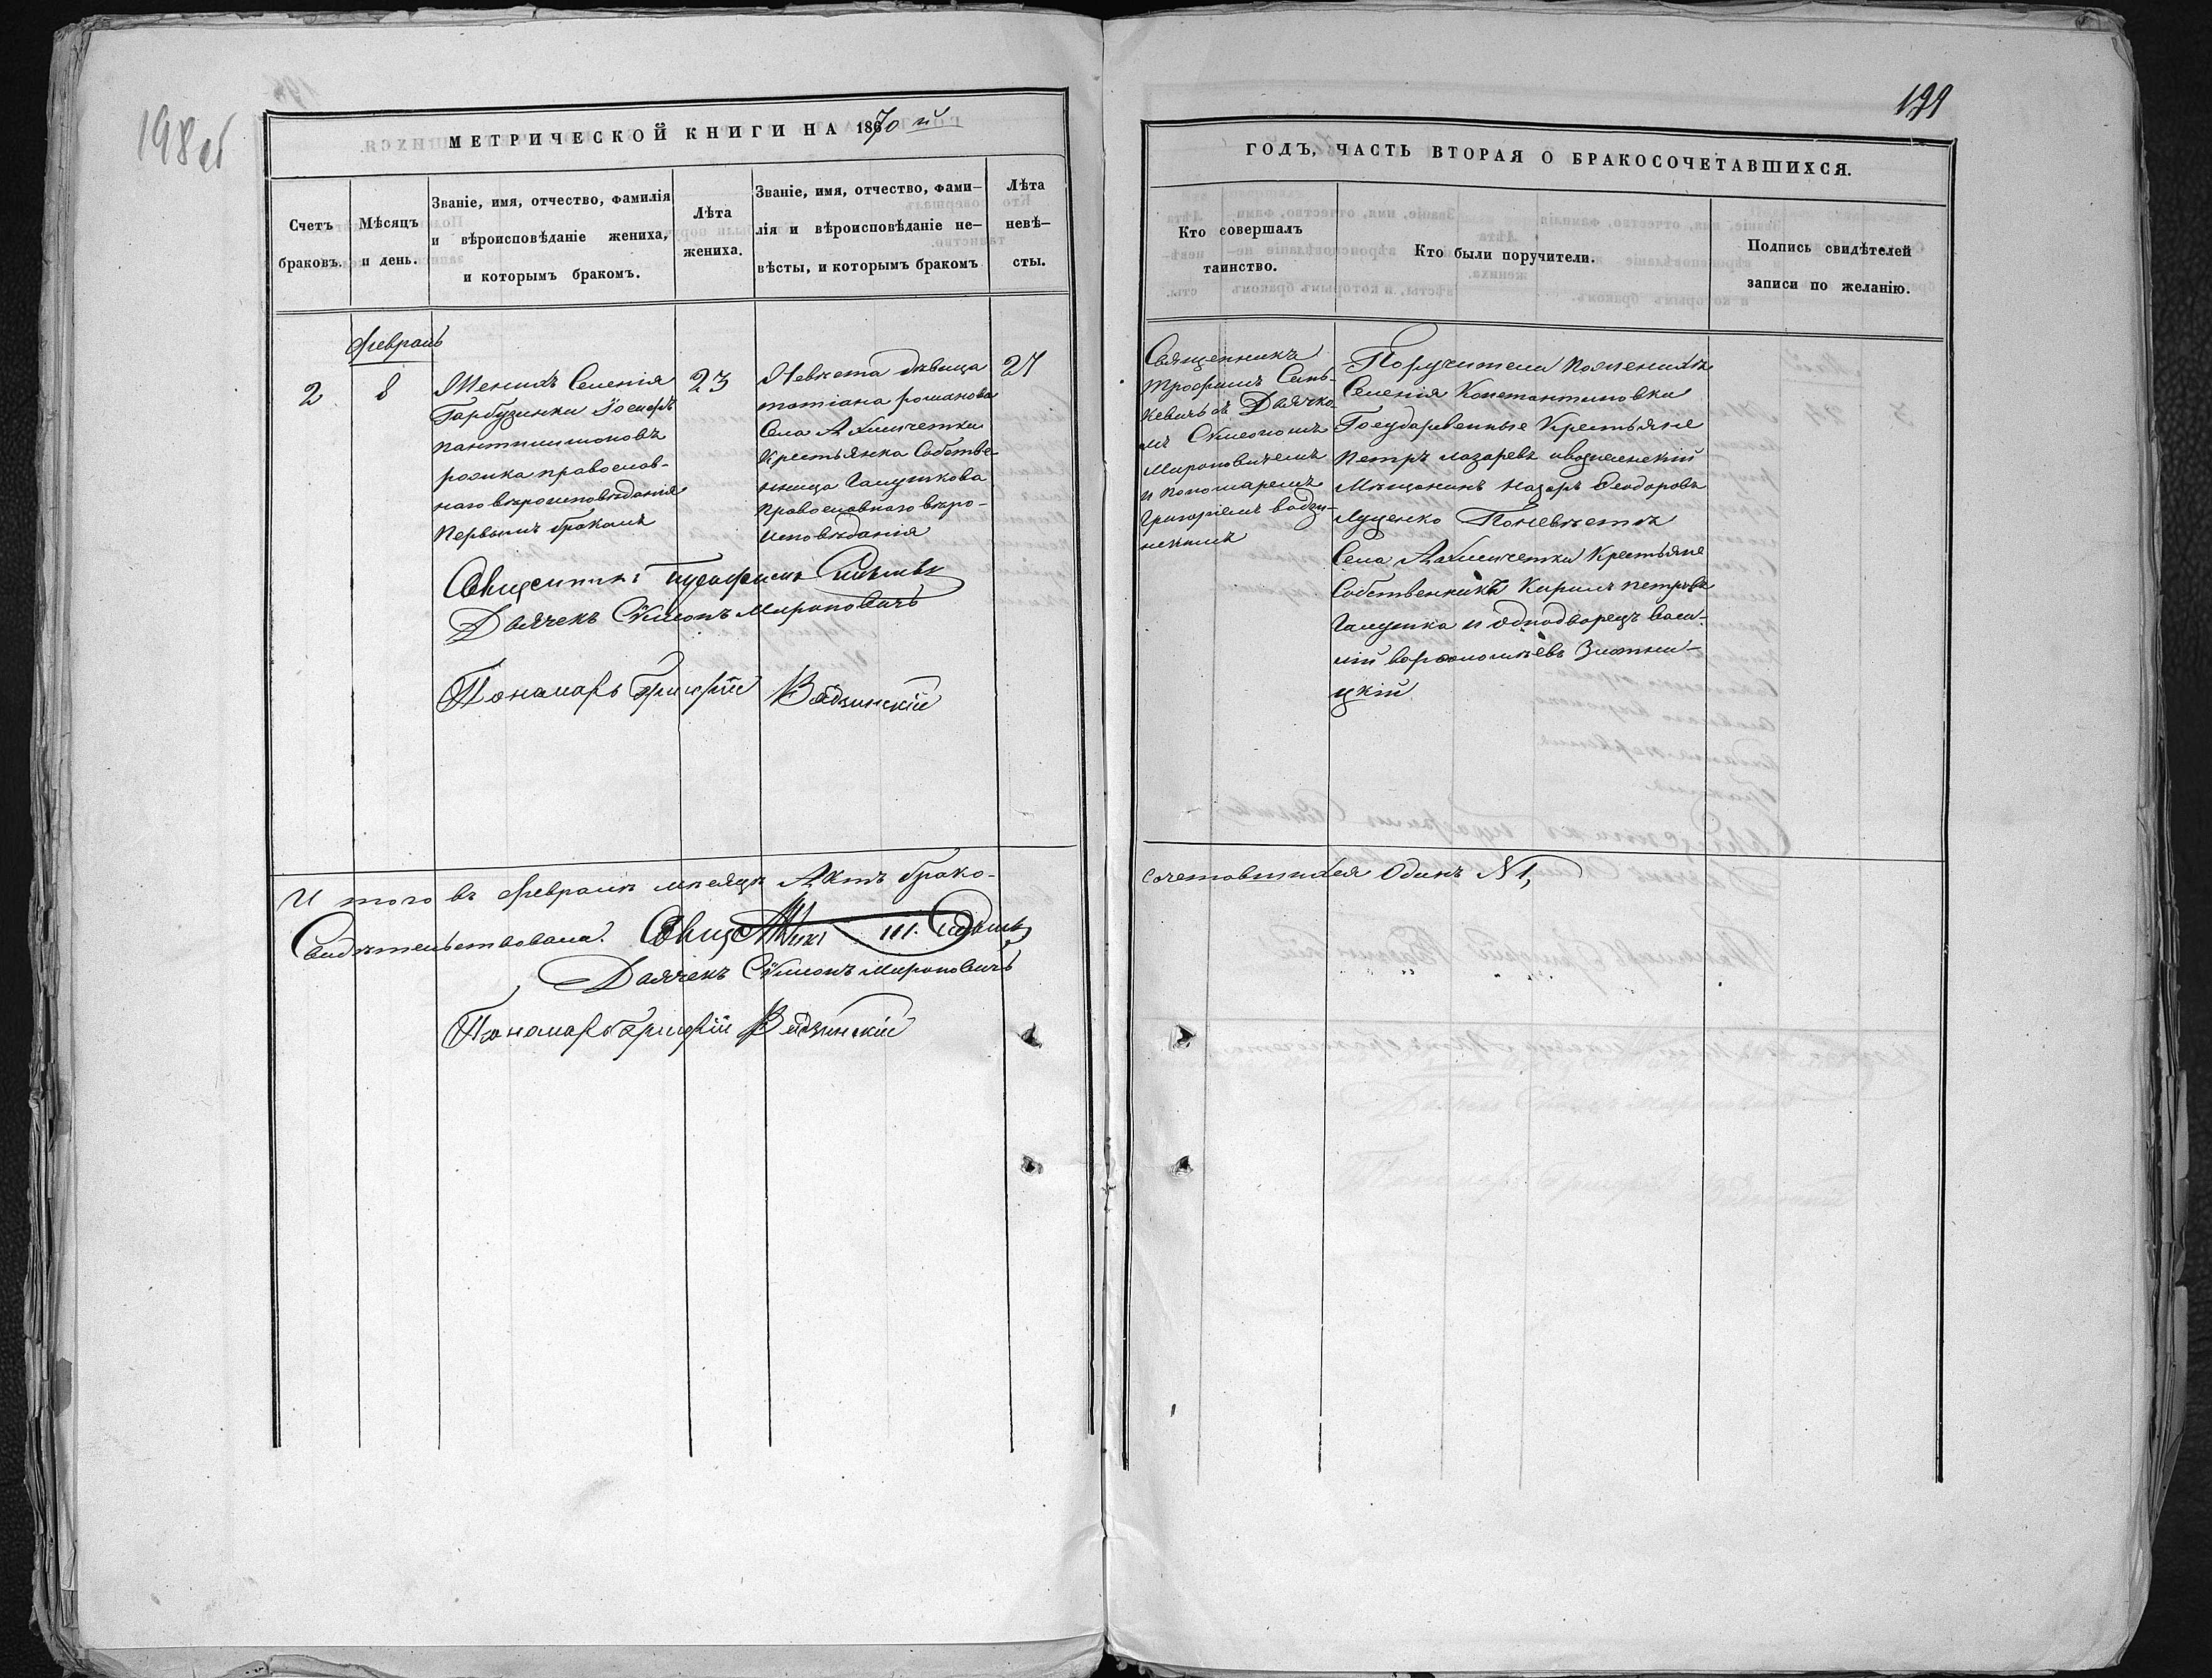 198 об
МЕТРИЧЕСКОЙ КНИГИ НА 1870 й
Счетъ браковъ.
Мѣсяцъ и день.
Званіе, имя, отчество, фамилія
и вѣроисповѣданіе жениха,
и которымъ бракомъ.
Лѣта
жениха.
Званіе, имя, отчество, фами-
лія и вѣроисповѣданіе не-
вѣсты, и которымъ бракомъ
Лѣта
невѣ-
сты.
Февраль
2
8
Женихъ Селенія
Гарбузинки Іосифъ
Пантилимоновъ
православ-
наго вѣроисповѣданія
Первымъ бракомъ
23
Невѣста дѣвица
татіана романова
Села Акмичетки
Крестьянка Собстве-
нница Галушкова
Православнаго вѣро-
исповѣданія
21
Священникъ Трофимъ
Дьячекъ Сѵмеонъ Мироновичъ
Пономарь Григорій Вадзинскій
И того въ Февралѣ мѣсяцѣ Актъ брако-
Свидѣтельствовали. Священникъ
Дьячекъ Сѵмеонъ Мироновичъ
Пономарь Григорій Вадзинскій
199
ГОДЪ, ЧАСТЬ ВТОРАЯ О БРАКОСОЧЕТАВШИХСЯ.
Кто совершалъ
таинство.
Кто были поручители.
Подпись свидѣтелей
записи по желанію.
Священникъ
Трофимъ Синь-
кевичъ съ Дьячко-
мъ Сѵмеономъ
Мироновичемъ
и пономаремъ
Григоріемъ вадзи-
нскимъ
Поручители По женихѣ
Селенія Константиновки
Государвенные Крестьяне
Петръ лазаревъ
Мѣщанинъ Назаръ Феодоровъ
Луценко По невѣстѣ
Села Акмичетки Крестьяне
Собственники Кирилъ петровъ
Галушка и однодворецъ Васи-
лій варфоломѣевъ
цкій
сочетавшихся Одинъ № 1,